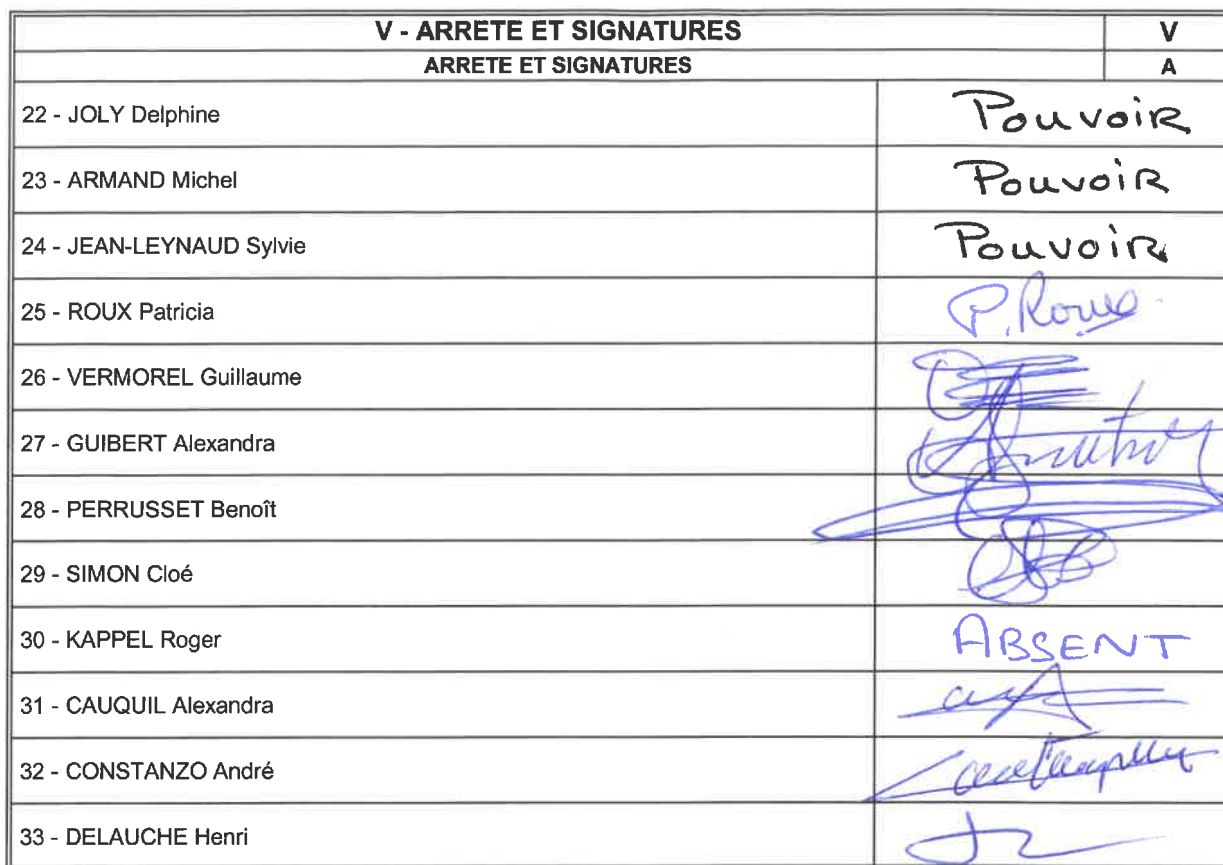 V - ARRETE ET SIGNATURES V
ARRETE ET SIGNATURES A
22 - JOLY Delphine Pouvoir
23 - ARMAND Michel Pouvoir
24 - JEAN-LEYNAUD Sylvie Pouvoir
25 - ROUX Patricia P. Roux
26 - VERMOREL Guillaume
27 - GUIBERT Alexandra
28 - PERRUSSET Benoît
29 - SIMON Cloé
30 - KAPPEL Roger ABSENT
31 - CAUQUIL Alexandra
32 - CONSTANZO André
33 - DELAUCHE Henri